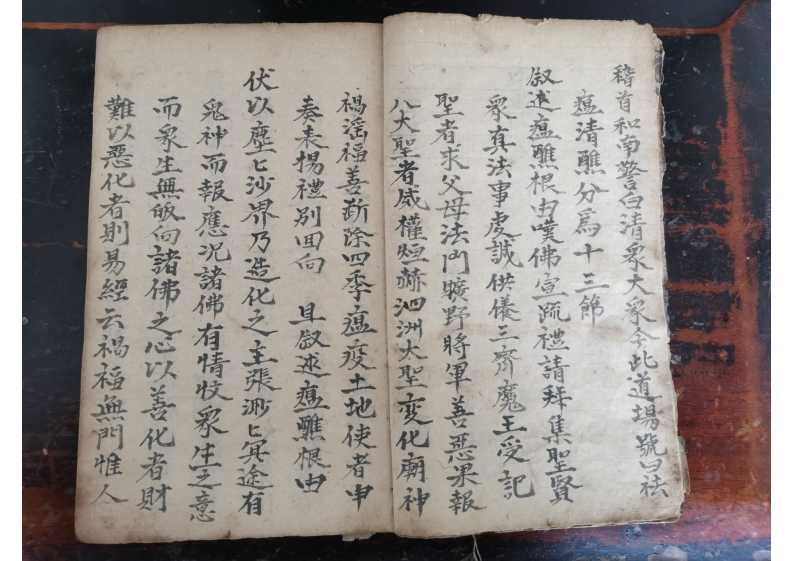 稽首和南警白清衆大衆今此道塲號曰祛
瘟清醮分爲十三節
叙述瘟醮根由嘆佛宣疏禮請拜集聖賢
衆真法事虔誠供儀三齊魔王受記
聖者求父母法門曠野將軍善惡果報
八大聖者威權烜赫泗洲大聖变化廟神
禍滛福善断除四季瘟疫土地使者申
奏表揚禮別回向 且叙述瘟醮根由
伏以塵匕沙界乃造化之主張渺匕冥途有
鬼神而報應况諸佛有情牧衆生之意
而衆生無皈向諸佛之心以善化者財
難以惡化者則易經云禍福無門惟人